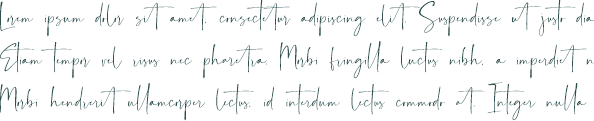 Lorem ipsum dolor sit amet, consectetur adipiscing elit. Suspendisse ut justo dia
Etiam tempor vel risus nec pharetra. Morbi fringilla luctus nibh, a imperdiet n
Morbi hendrerit ullamcorper lectus, id interdum lectus commodo at. Integer nulla